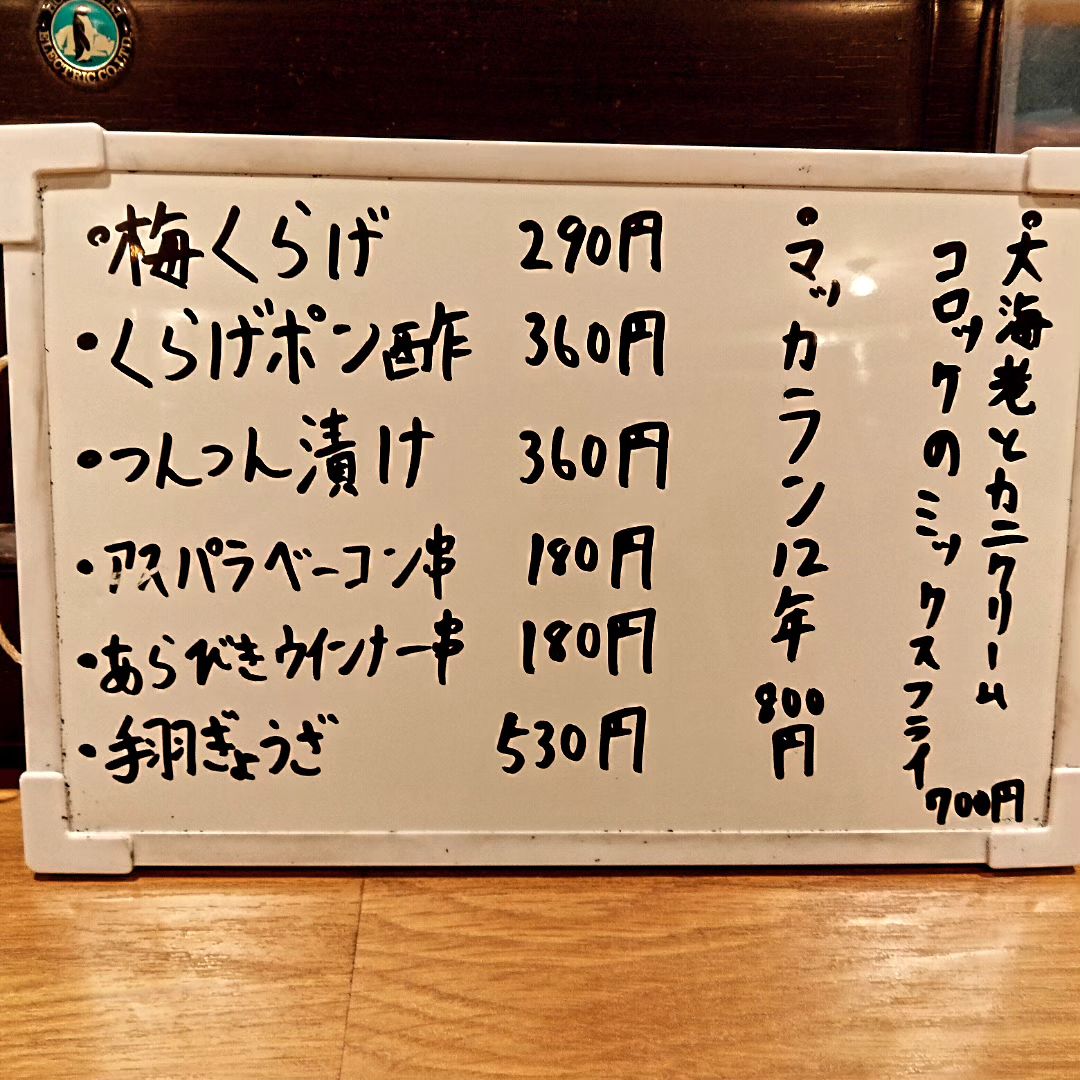 ELECTRIC CO.,LTD.
・梅くらげ 290円
・くらげポン酢 360円
・つんつん漬け 360円
・アスパラベーコン串 180円
・あらびきウインナー串 180円
・手羽ぎょうざ 530円
・大海老とカニクリーム
コロッケのミックスフライ
700円
・マッカラン12年
800
円